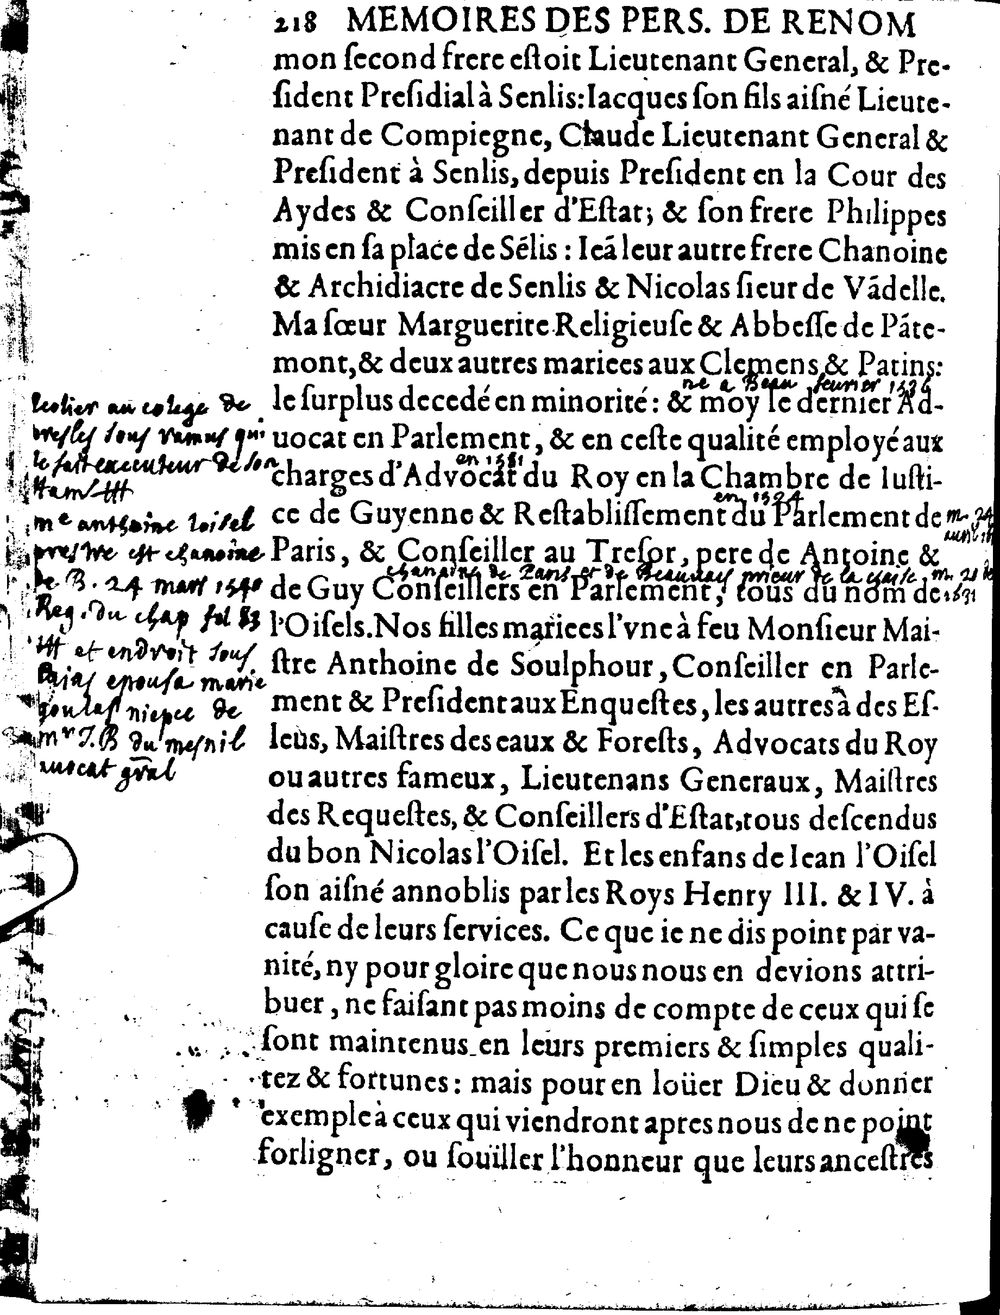 218 MEMOIRES DES PERS. DE RENOM
mon ſecond frere eſtoit Lieutenant General, & Pre-
ſident Preſidial à Senlis: Iacques ſon fils aiſné Lieute-
nant de Compiegne, Claude Lieutenant General &
Preſident à Senlis, depuis Preſident en la Cour des
Aydes & Conſeiller d'Eſtat; & ſon frere Philippes
mis en ſa place de Sẽlis : Ieã leur autre frere Chanoine
& Archidiacre de Senlis & Nicolas ſieur de Vãdelle.
Ma ſœur Marguerite Religieuſe & Abbeſſe de Pãte-
mont, & deux autres mariees aux Clemens & Patins:
né a Beau. feurier 1536
le ſurplus decedé en minorité : & moy le dernier Ad-
uocat en Parlement, & en ceſte qualité employé aux
en 1581
charges d'Advocat du Roy en la Chambre de Iuſti-
en 1594
ce de Guyenne & Reſtabliſſement du Parlement de
Paris, & Conſeiller au Treſor, pere de Antoine &
chanoine de Paris et de Beauvais prieur de la
de Guy Conſeillers en Parlement, tous du nom de
l'Oiſels. Nos filles mariees l'vne à feu Monſieur Mai-
ſtre Anthoine de Soulphour, Conſeiller en Parle-
ment & Preſident aux Enqueſtes, les autres à des Eſ-
leûs, Maiſtres des eaux & Foreſts, Advocats du Roy
ou autres fameux, Lieutenans Generaux, Maiſtres
des Requeſtes, & Conſeillers d'Eſtat, tous deſcendus
du bon Nicolas l'Oiſel. Et les enfans de Iean l'Oiſel
ſon aiſné annoblis par les Roys Henry III. & IV. à
cauſe de leurs ſervices. Ce que ie ne dis point par va-
nité, ny pour gloire que nous nous en devions attri-
buer, ne faiſant pas moins de compte de ceux qui ſe
ſont maintenus en leurs premiers & ſimples quali-
tez & fortunes : mais pour en loüer Dieu & donner
exemple à ceux qui viendront apres nous de ne point
forligner, ou ſoüiller l'honneur que leurs anceſtres
au colege de
presles sous ramus qui
le fait executeur de son
me anthoine loisel
prestre et chanoine
de B. 24 mars 1540
Reg. du chap fol 83
et endroit sous
epousa marie
goulas niepce de
mr J. B du mesnil
auocat gnãl